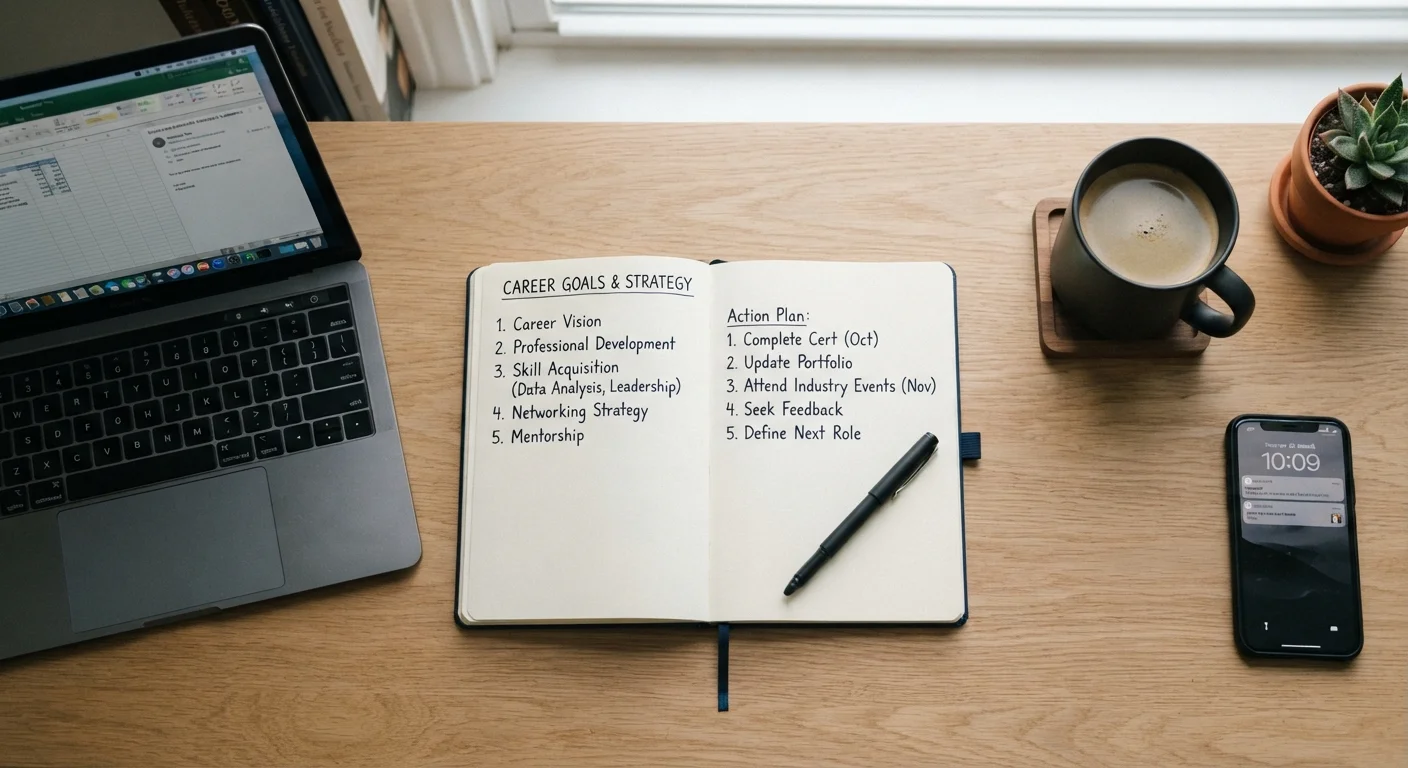 CAREER GOALS & STRATEGY
1. Career Vision
2. Professional Development
3. Skill Acquisition
(Data Analysis, Leadership)
4. Networking Strategy
5. Mentorship
Action Plan:
1. Complete Cert (Oct)
2. Update Portfolio
3. Attend Industry Events (Nov)
4. Seek Feedback
5. Define Next Role
10:09